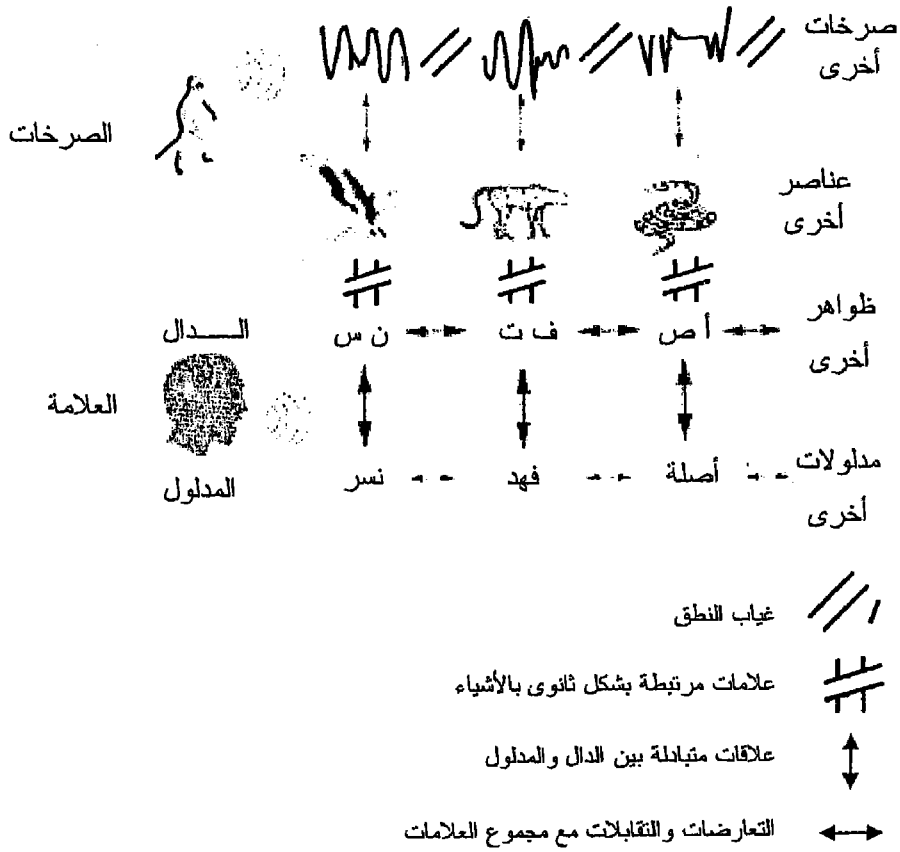 صرخات
أخرى
الصرخات
عناصر
أخرى
ظواهر
أخرى
أ ص
ف ت
ن س
الـــــدال
العلامة
مدلولات
أخرى
أصلة
فهد
نسر
المدلول
غياب النطق
علامات مرتبطة بشكل ثانوى بالأشياء
علاقات متبادلة بين الدال والمدلول
التعارضات والتقابلات مع مجموع العلامات